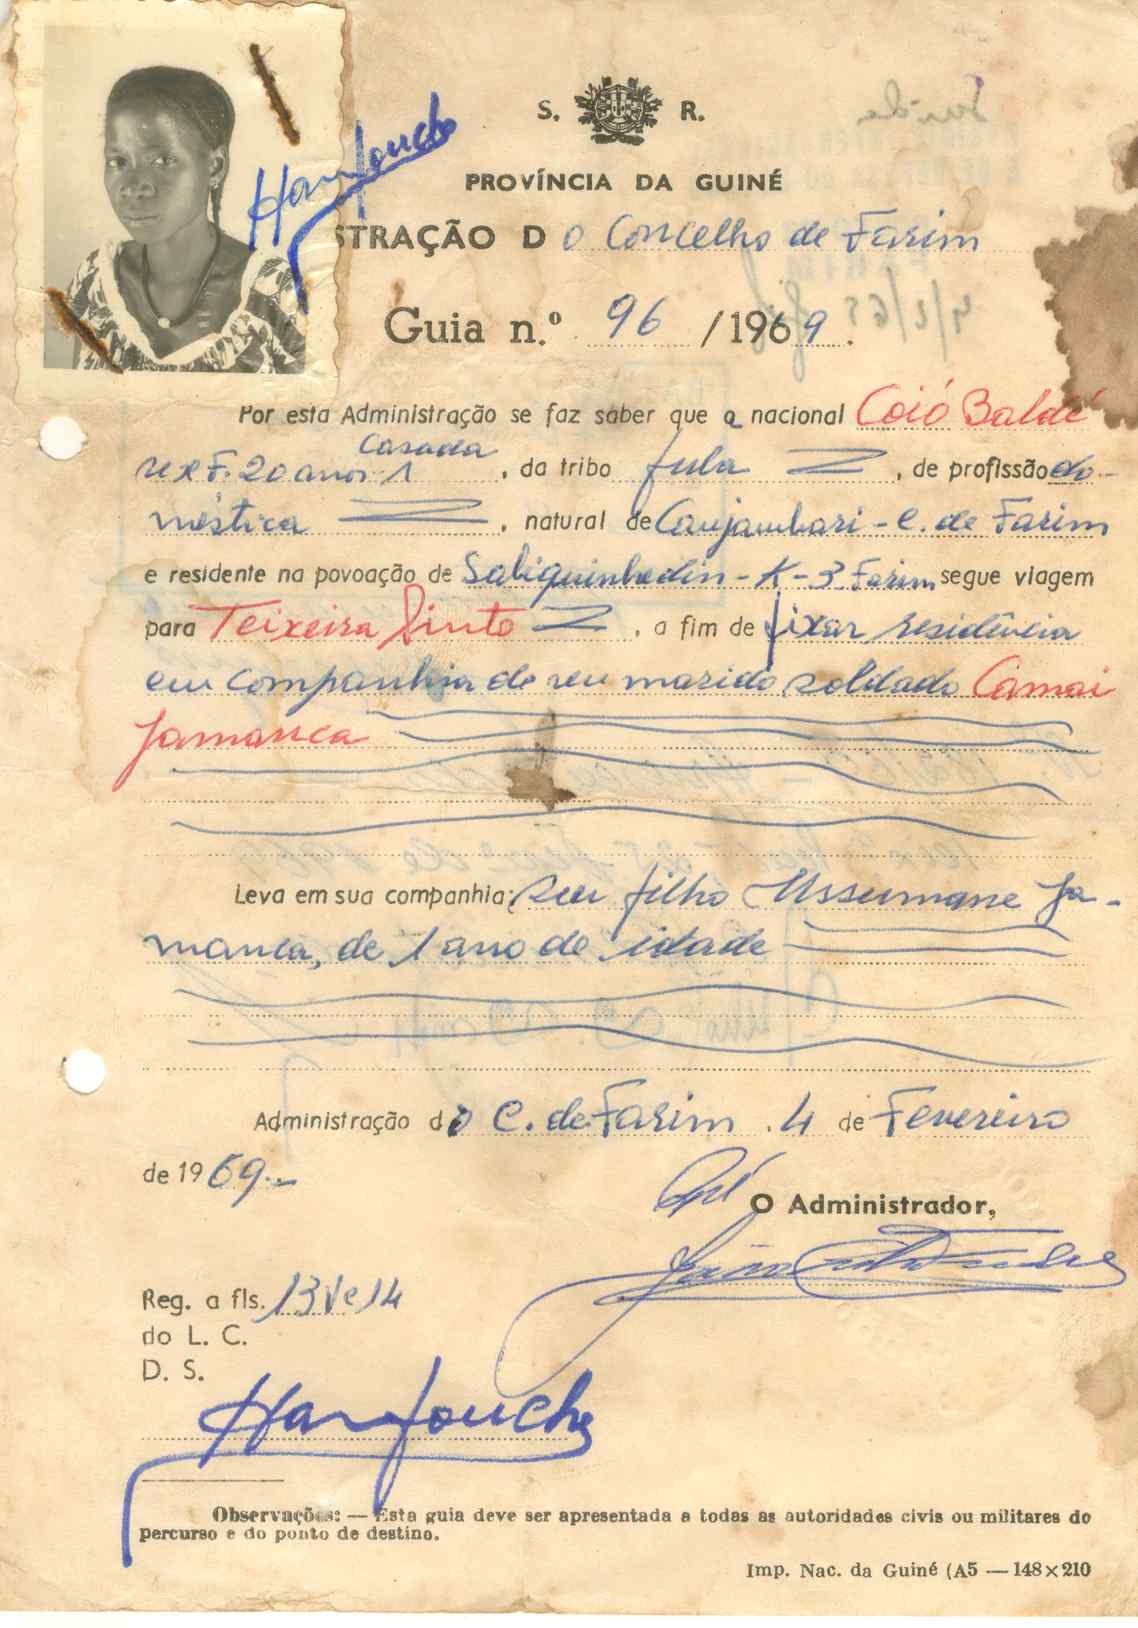 Harfouche
S. R.
PROVÍNCIA DA GUINÉ
STRAÇÃO DO Concelho de Farim
Guia n.º 96 /1969.
Por esta Administração se faz saber que a nacional Coió Baldé
Casada
sexF. 20 anos 1, da tribo fula, de profissão do-
méstica, natural de Canjambari - C. de Farim
e residente na povoação de Saliquinhedin - K - 3. Farim segue viagem
para Teixeira Pinto, a fim de fixar residência
em companhia de seu marido soldado Camai
Jamanca
Leva em sua companhia: seu filho Ussumane Ja-
manca, de 1 ano de idade
Administração do C. de Farim, 4 de Fevereiro
de 1969.-
O Administrador,
Reg. a fls. 13 V e 14
do L. C.
D. S.
Harfouche
Observações: — Esta guia deve ser apresentada a todas as autoridades civis ou militares do
percurso e do ponto de destino.
Imp. Nac. da Guiné (A5 — 148×210